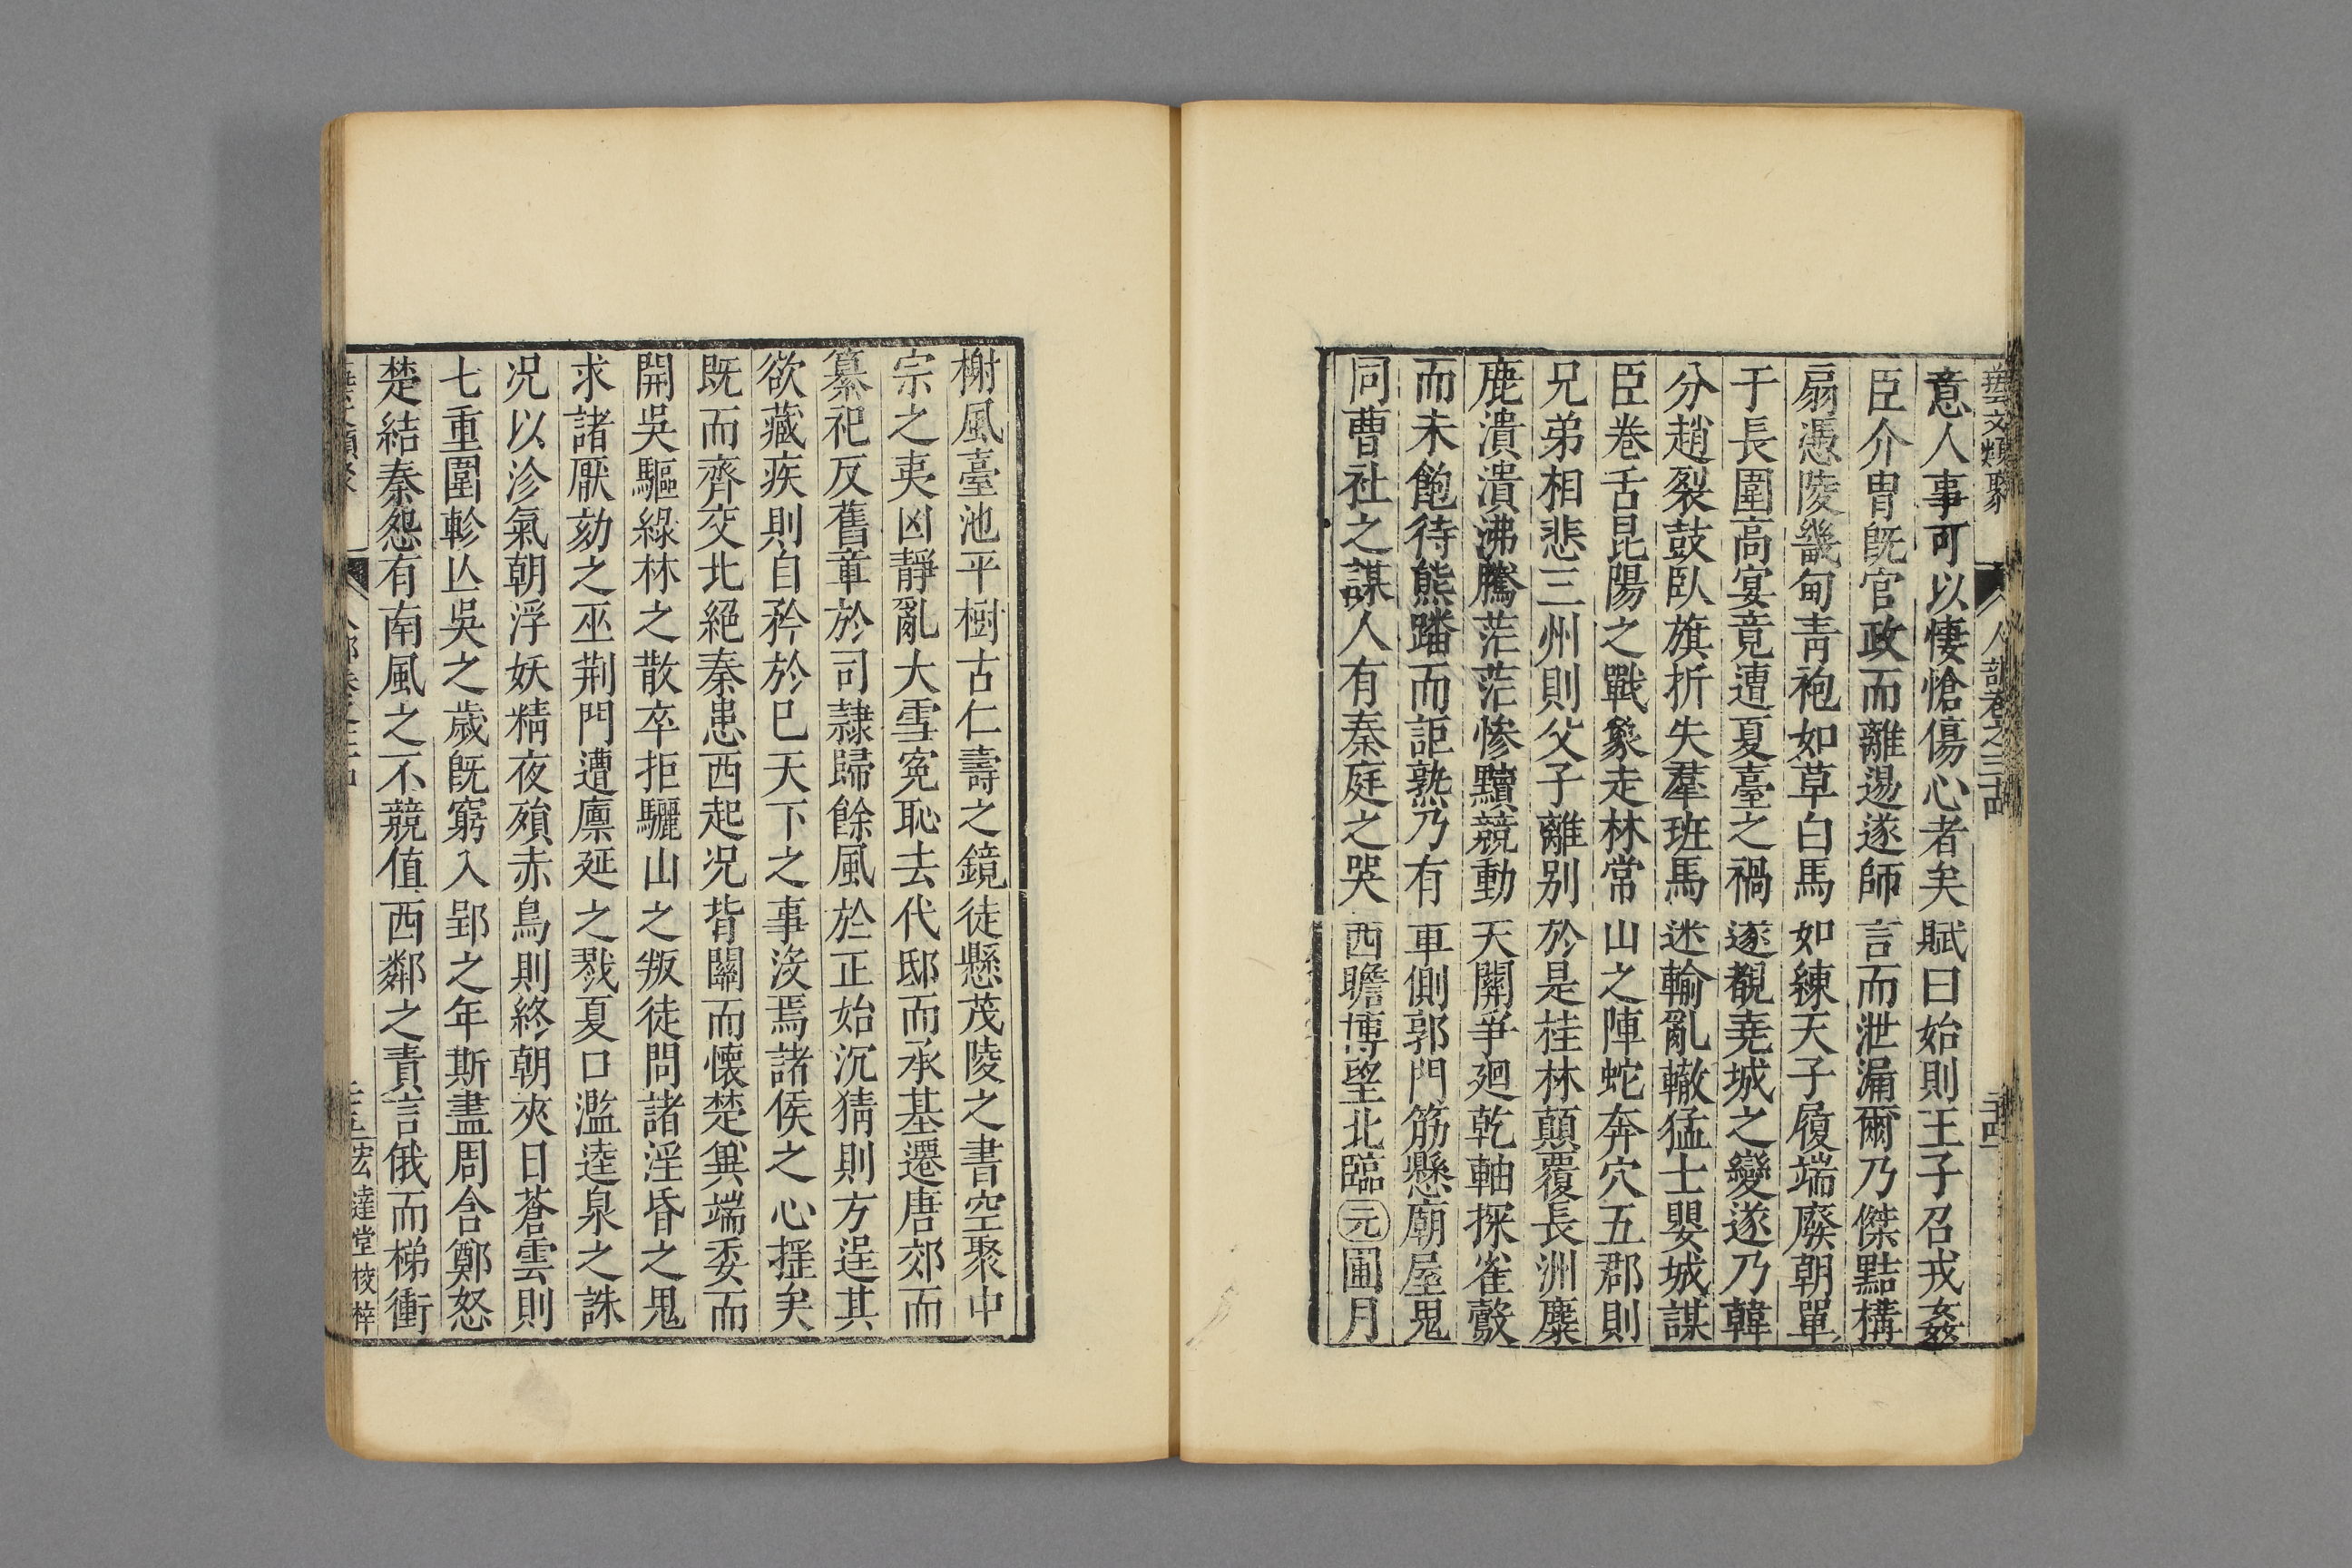 藝文類聚 人部卷之三十四 二十四
意人事可以悽愴傷心者矣賦曰始則王子召戎姦
臣介胄既官政而離逷遂師言而泄漏爾乃傑黠構
扇憑陵畿甸青袍如草白馬如練天子履端廢朝單
于長圍高宴竟遭夏臺之禍遂覩堯城之變遂乃韓
分趙裂鼓臥旗折失羣班馬迷輪亂轍猛士嬰城謀
臣卷舌昆陽之戰象走林常山之陣蛇奔穴五郡則
兄弟相悲三州則父子離别於是桂林顛覆長洲麋
鹿潰潰沸騰茫茫慘黷競動天關爭廻乾軸探雀鷇
而未飽待熊蹯而詎熟乃有車側郭門筋懸廟屋鬼
同曹社之謀人有秦庭之哭西瞻博望北臨元圃月
榭風臺池平樹古仁壽之鏡徒懸茂陵之書空聚中
宗之夷凶靜亂大雪寃恥去代邸而承基遷唐郊而
纂祀反舊章於司隷歸餘風於正始沉猜則方逞其
欲藏疾則自矜於巳天下之事沒焉諸侯之心搖矣
既而齊交北絕秦患西起况背關而懷楚兾端委而
開吳驅綠林之散卒拒驪山之叛徒問諸淫昏之鬼
求諸厭劾之巫荆門遭廩延之戮夏口濫逵泉之誅
况以沴氣朝浮妖精夜殞赤烏則終朝夾日蒼雲則
七重圍軫亾吳之歲既窮入郢之年斯盡周含鄭怒
楚結秦怨有南風之不競值西鄰之責言俄而梯衝
宏達堂校梓